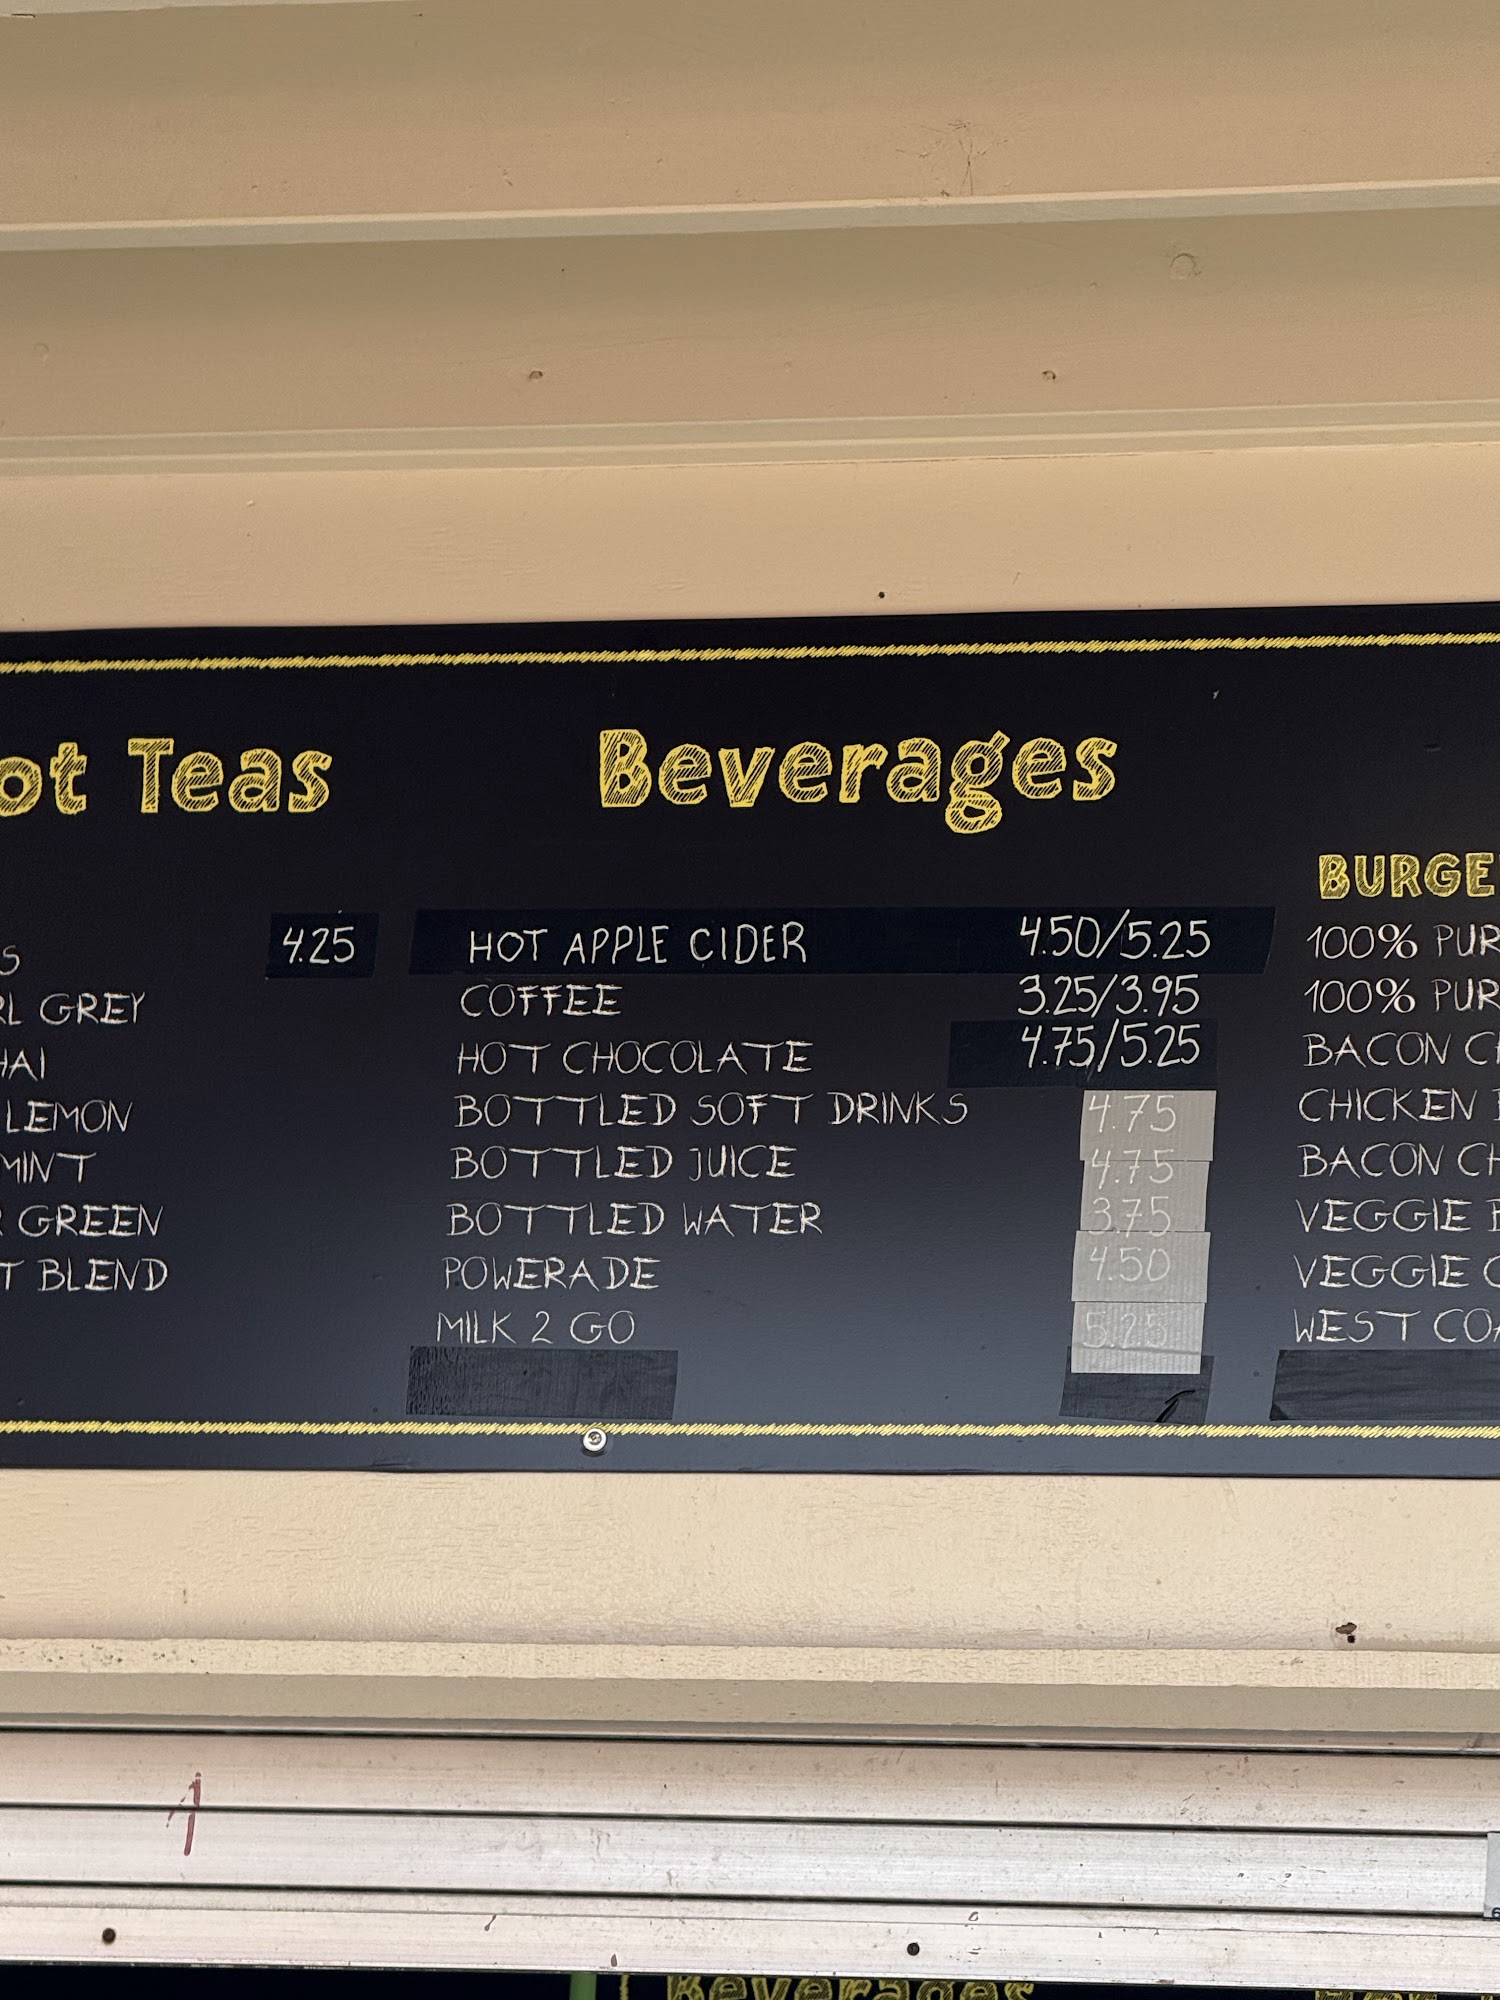 ot Teas
4.25
S
RL GREY
HAI
LEMON
MINT
R GREEN
T BLEND
Beverages
HOT APPLE CIDER 4.50/5.25
COFFEE 3.25/3.95
HOT CHOCOLATE 4.75/5.25
BOTTLED SOFT DRINKS 4.75
BOTTLED JUICE 4.75
BOTTLED WATER 3.75
POWERADE 4.50
MILK 2 GO 5.25
BURGE
100% PUR
100% PUR
BACON CH
CHICKEN B
BACON CH
VEGGIE B
VEGGIE C
WEST COA
1
Beverages